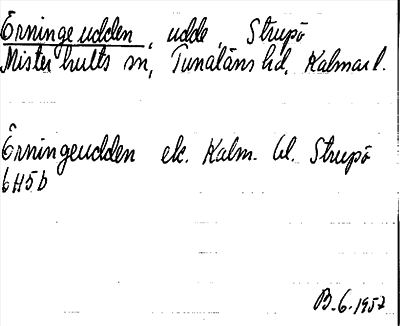 Örningeudden, udde, Strupö
Misterhults sn, Tunaläns hd, Kalmar l.
Örningeudden ek. Kalm. bl. Strupö
6H5b
B.6.1957